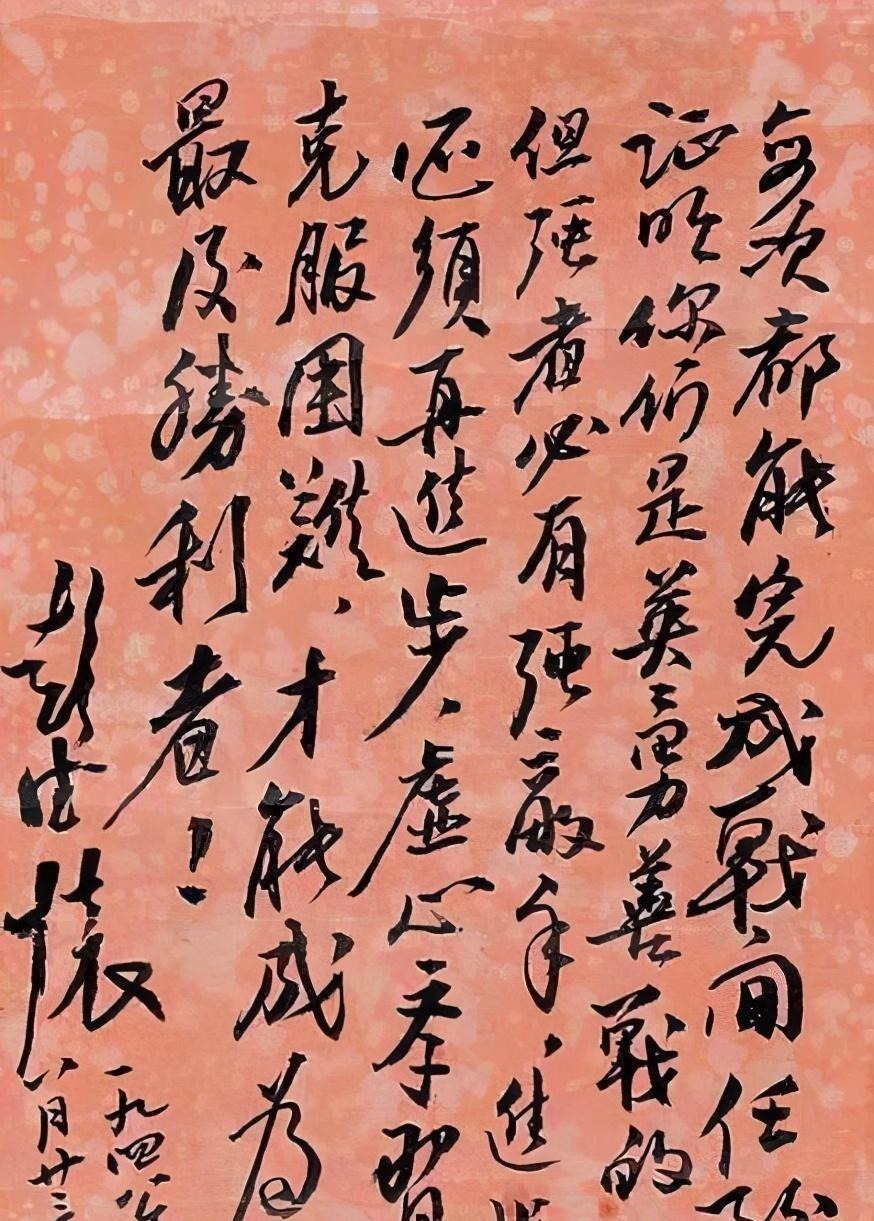 每次都能完成战间任
证明你们是英勇善戰的
但强者必有强敵手、進
还须再進步、虚心学習
克服困難、才能成为
最后勝利者！
彭德懷
一九四八年
八月廿三